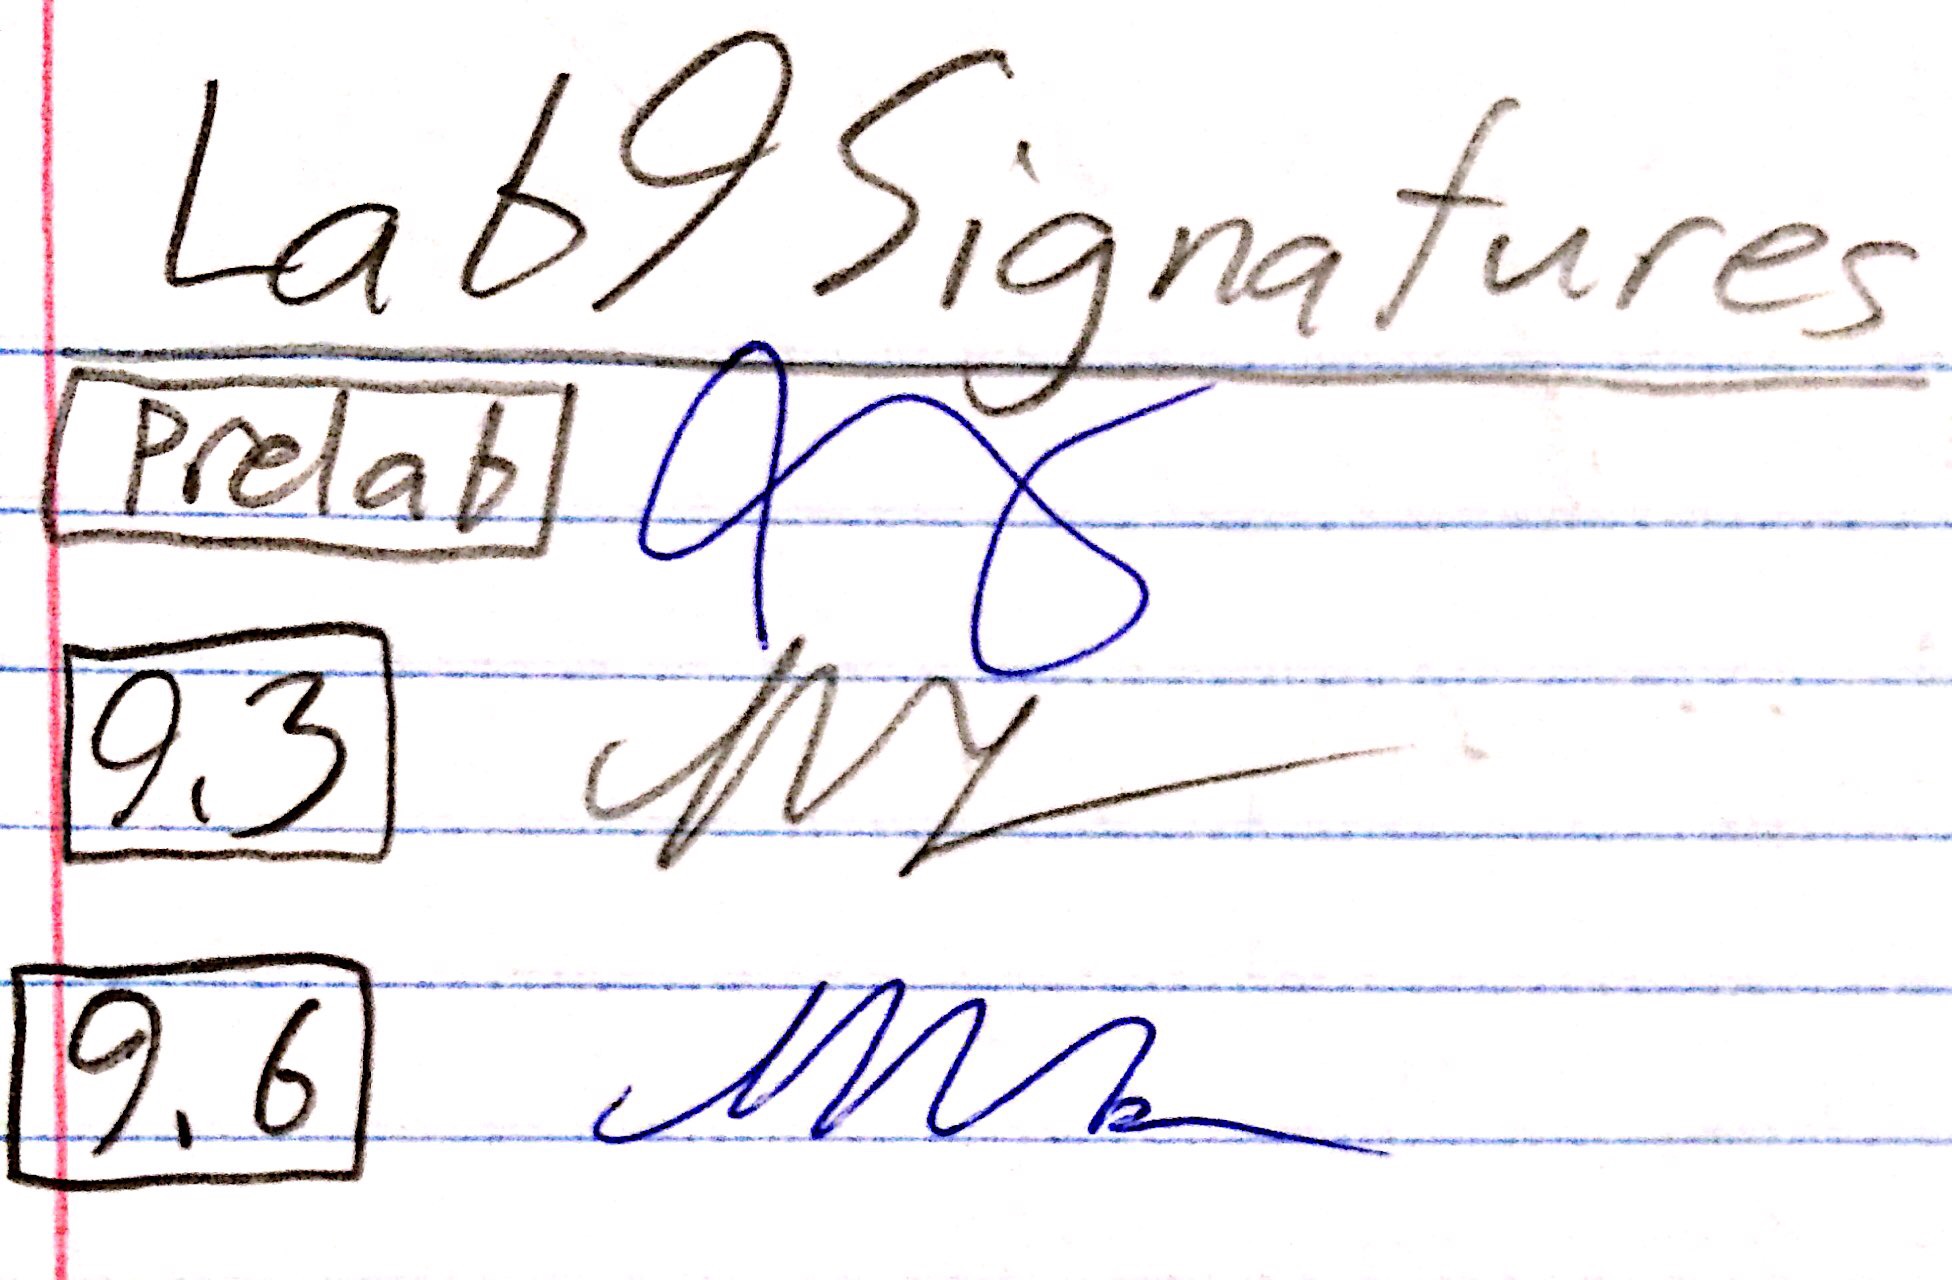 Lab 9 Signatures
Prelab
9.3
9.6